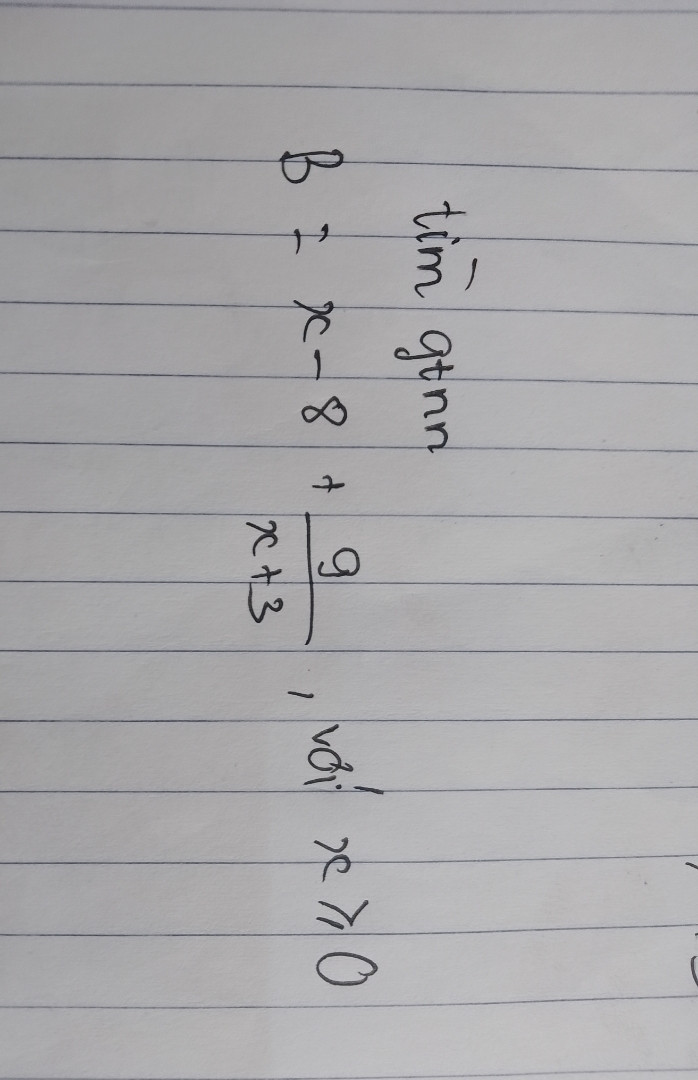 tìm gtnn
B = x - 8 + 9/(x+3) , với x ≥ 0